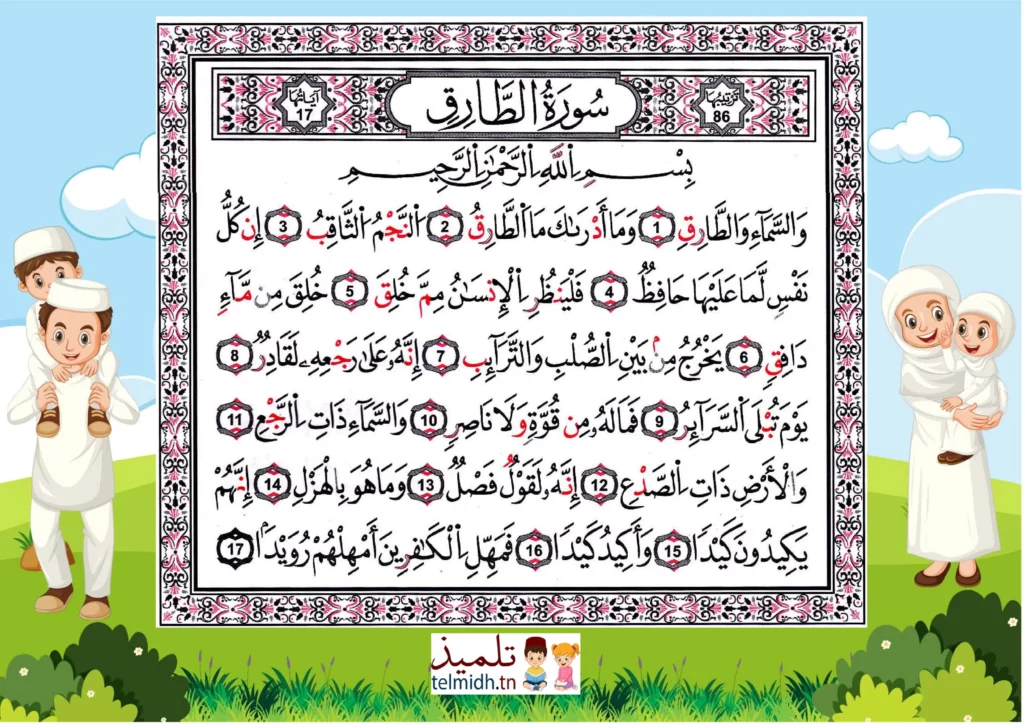 ترتيبها 86
سُورَةُ الطَّارِقِ
آيَاتُهَا 17
بِسْمِ اِللَّهِ اِلرَّحْمَٰنِ اِلرَّحِيمِ
وَالسَّمَآءِ وَالطَّارِقِ 1 وَمَا أَدْرَىٰكَ مَا اَلطَّارِقُ 2 اَلنَّجْمُ الثَّاقِبُ 3 إِن كُلُّ
نَفْسٍ لَّمَا عَلَيْهَا حَافِظٌ 4 فَلْيَنظُرِ اِلْإِنسَانُ مِمَّ خُلِقَ 5 خُلِقَ مِن مَّآءٍ
دَافِقٍ 6 يَخْرُجُ مِنۢ بَيْنِ اِلصُّلْبِ وَالتَّرَآئِبِ 7 إِنَّهُۥ عَلَىٰ رَجْعِهِۦ لَقَادِرٌ 8
يَوْمَ تُبْلَى اَلسَّرَآئِرُ 9 فَمَا لَهُۥ مِن قُوَّةٍ وَلَا نَاصِرٍ 10 وَالسَّمَآءِ ذَاتِ اِلرَّجْعِ 11
وَالْأَرْضِ ذَاتِ اِلصَّدْعِ 12 إِنَّهُۥ لَقَوْلٌ فَصْلٌ 13 وَمَا هُوَ بِالْهَزْلِ 14 إِنَّهُمْ
يَكِيدُونَ كَيْدًا 15 وَأَكِيدُ كَيْدًا 16 فَمَهِّلِ اِلْكَٰفِرِينَ أَمْهِلْهُمْ رُوَيْدًا 17
تلميذ
telmidh.tn